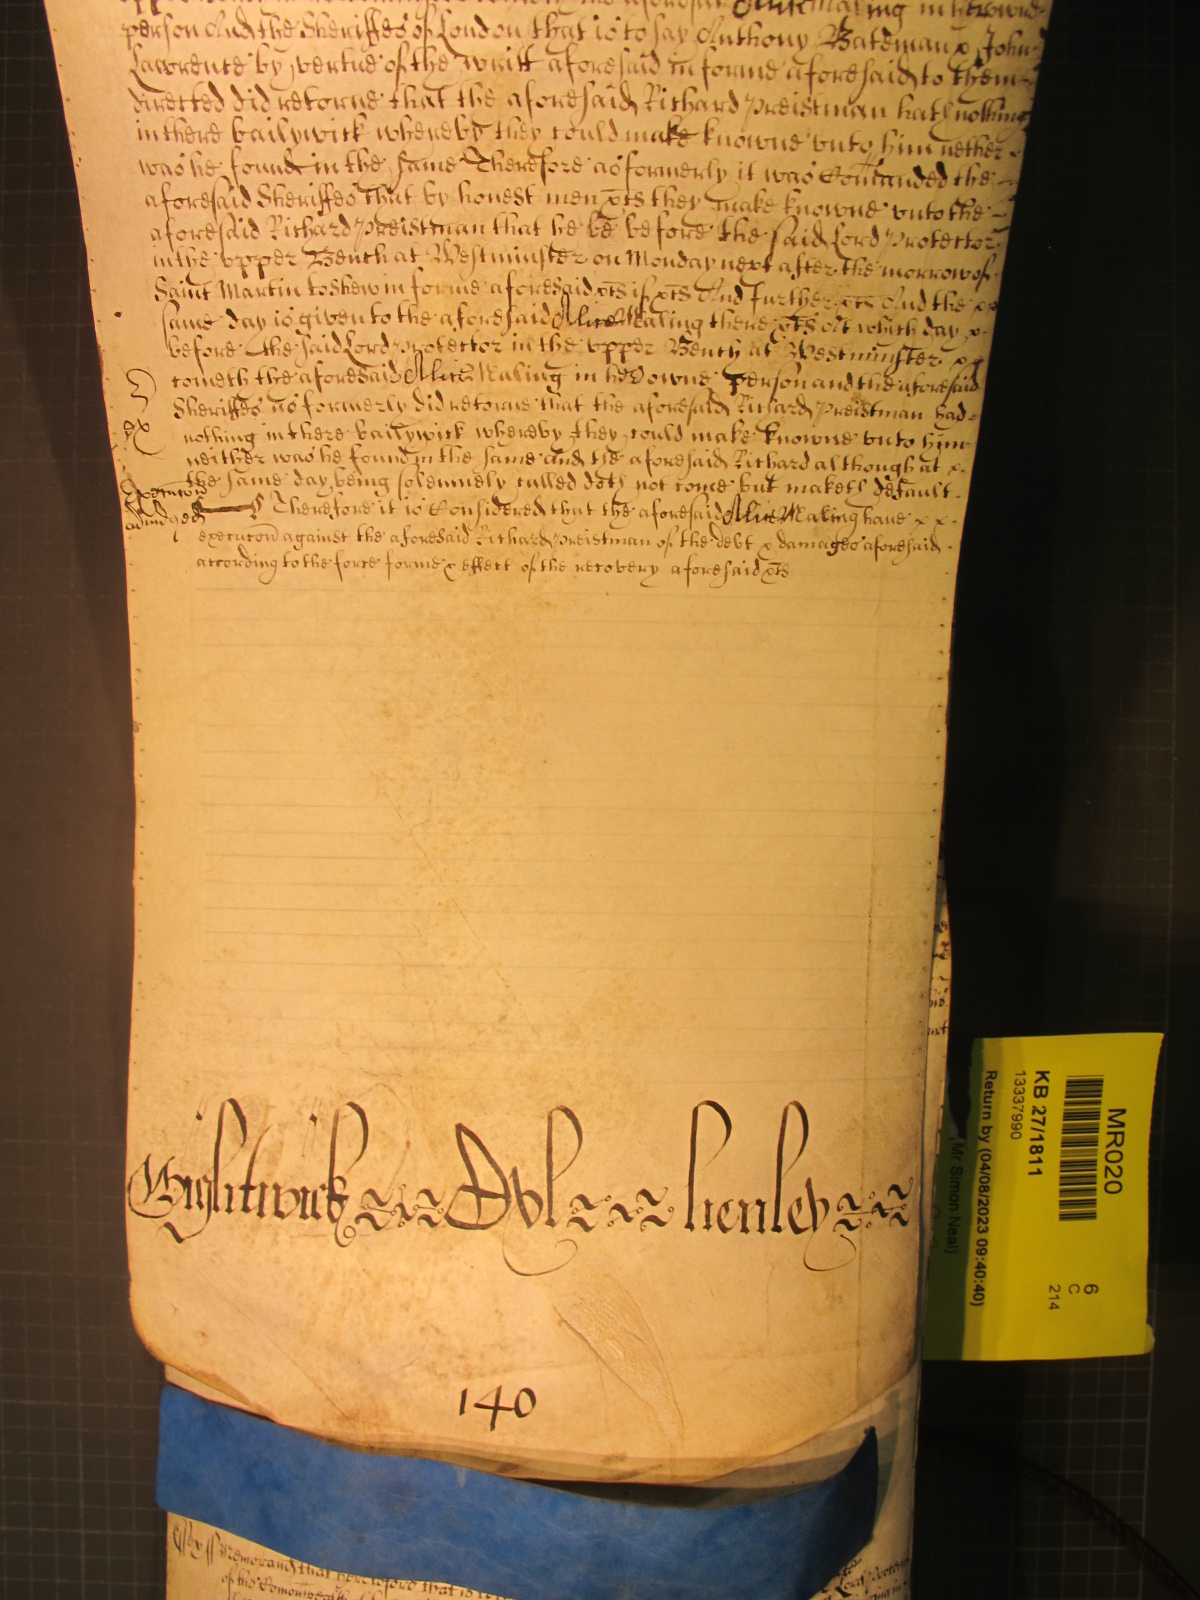 aforesaid Alice Maling in her owne
person And the Sheriffes of London that is to say Anthony Bateman x John
Lawrence by vertue of the writt aforesaid in forme aforesaid to them
directed did retorne that the aforesaid Richard Preistman hath nothing
in there bailywick whereby they could make knowne unto him nether
was he found in the same Therefore as formerly it was Comanded the
aforesaid Sheriffes that by honest men xts they make knowne unto the
aforesaid Richard Preistman that he be before the said Lord Protector
in the upper Bench at Westminster on Monday next after the morrow of
Saint Martin to shew in forme aforesaid xts if xts And further xts And the x
same day is given to the aforesaid Alice Maling there xts At which day x
before the said Lord Protector in the upper Bench at Westminster x x
cometh the aforesaid Alice Maling in her owne person and the aforesaid
Sheriffes as formerly did retorne that the aforesaid Richard Preistman had
nothing in there bailywick whereby they could make knowne unto him
neither was he found in the same and the aforesaid Richard although at x
the same day being solemnely called doth not come but maketh default
Therefore it is Considered that the aforesaid Alice Maling have x x
execucon against the aforesaid Richard Preistman of the debt x damages aforesaid
according to the force forme x effect of the recovery aforesaid xts
ex
Execucon
adiudged
Wightwick Dyl henley
140
Memorand that heretofore that is
of the Comonwealth
Lord Protector
MR020
KB 27/1811
13337990
Return by (04/08/2023 09:40:40)
(Mr Simon Neal)
6
C
214